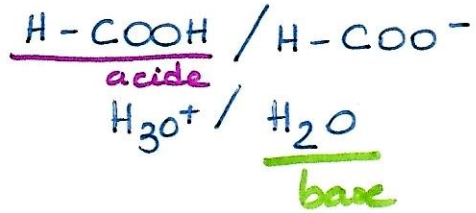 H - COOH / H - COO⁻
acide
H₃O⁺ / H₂O
base